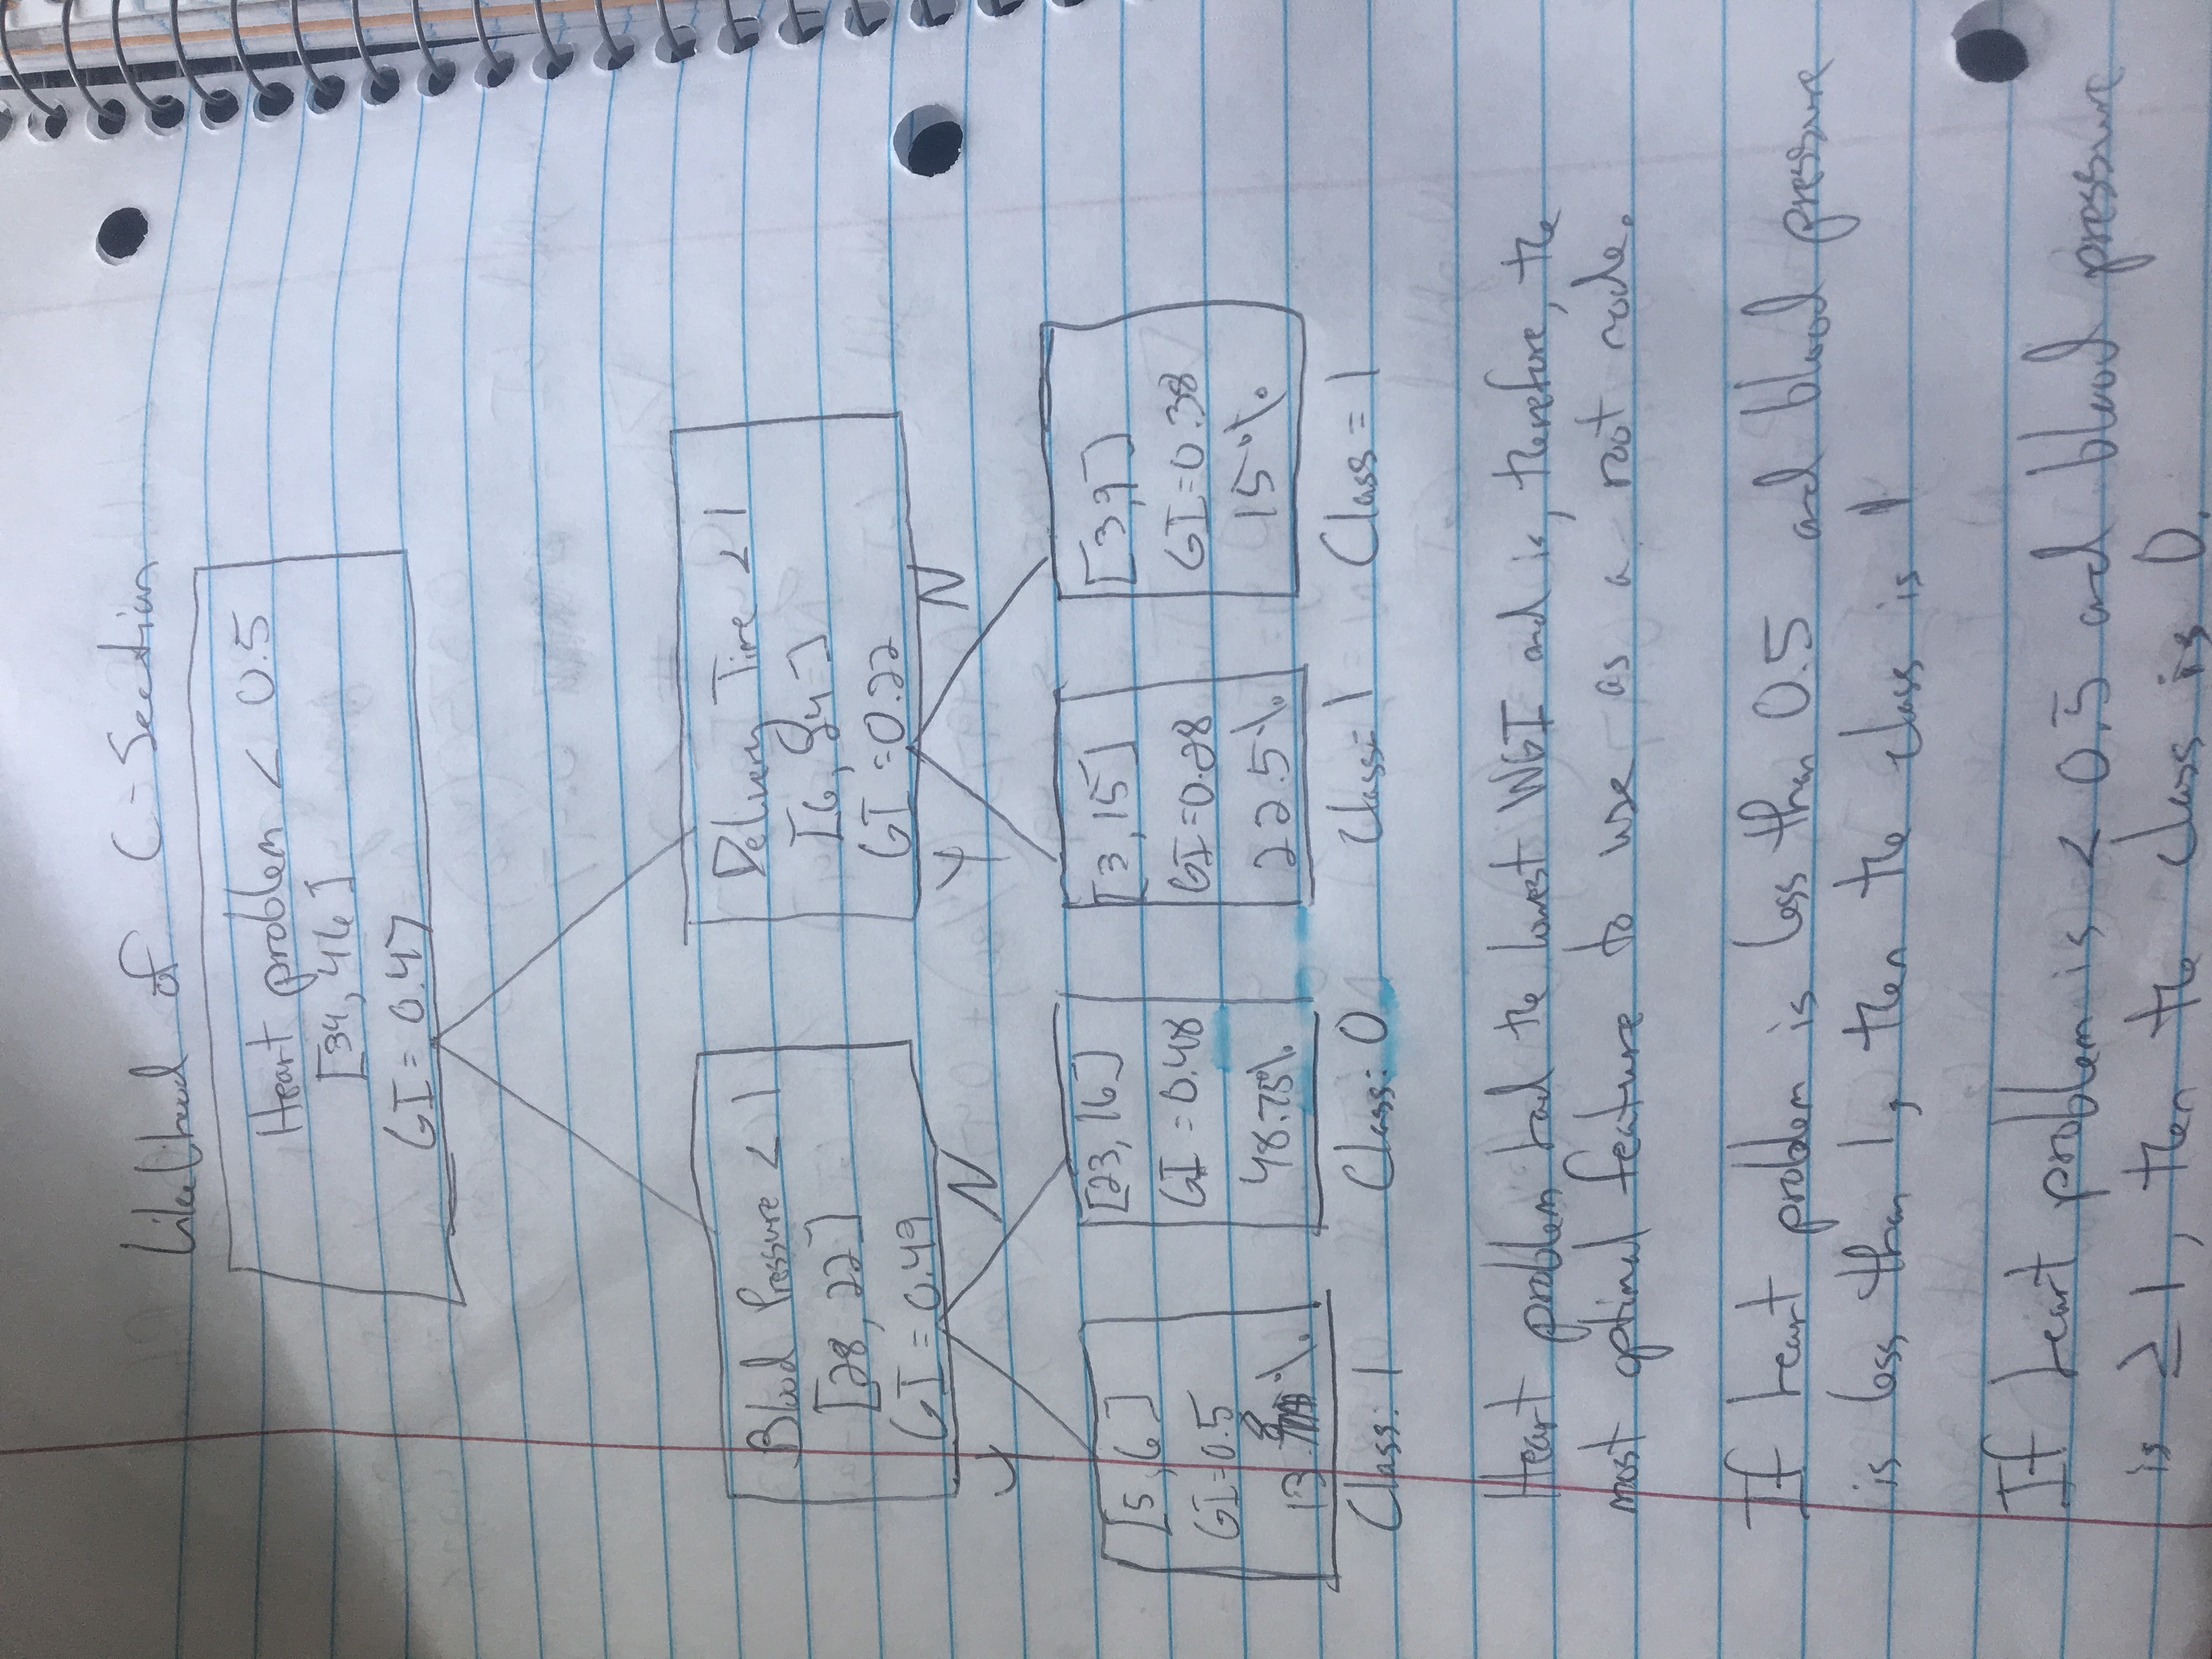 Likelihood of C-Section
Heart problem < 0.5
[34, 46]
GI = 0.47
Blood Pressure < 1
[28, 22]
GI = 0.49
Delivery Time < 1
[6, 24]
GI = 0.22
Y
N
Y
N
[5, 6]
GI=0.5
13.8%
Class: 1
[23, 16]
GI = 0.48
48.75%
Class: 0
[3, 15]
GI=0.28
22.5%
Class= 1
[3,9]
GI=0.38
15%
Class = 1
Heart problem had the lowest WGI and is, therefore, the
most optimal feature to use as a root node.
If heart problem is less than 0.5 and blood pressure
is less than 1, then the class is 1
If heart problem is < 0.5 and blood pressure
is ≥ 1, then the class is 0.